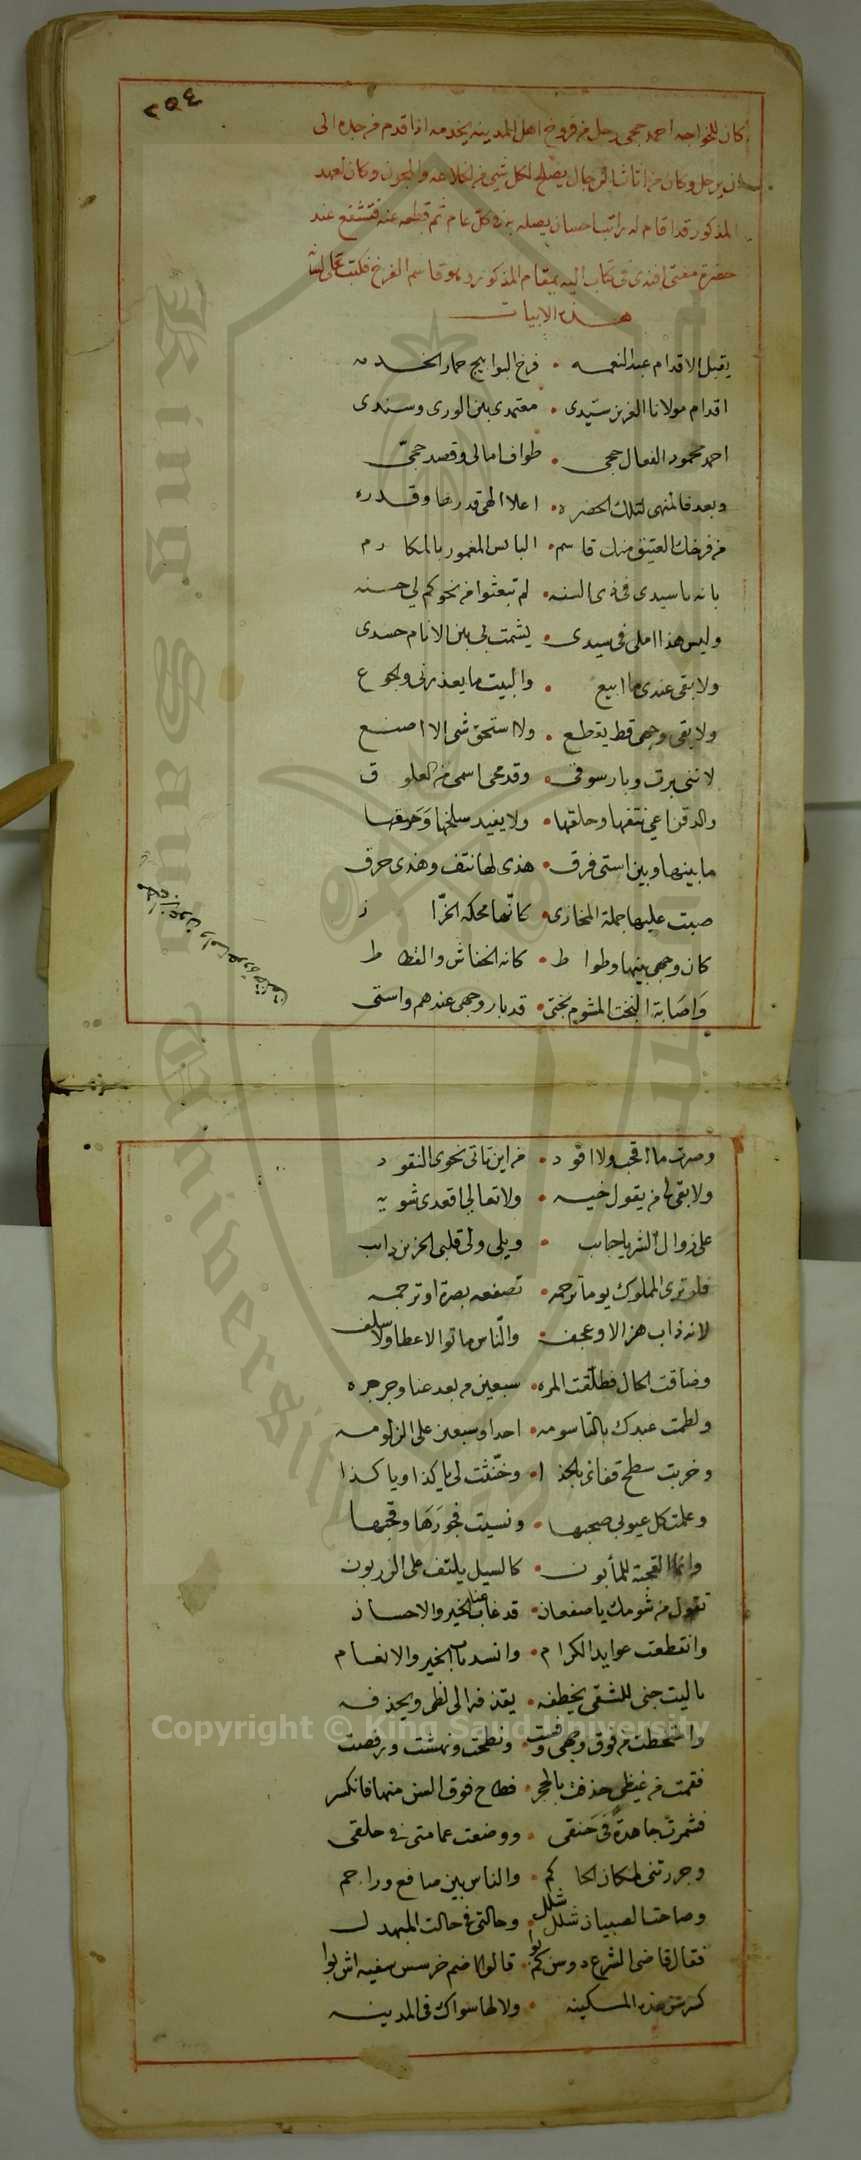 ٢٥٤
كان للخواجه احمد حجي رجل من فروخ اهل المدينه يخدمه اذا قدم من جده الى
ان يرحل وكان من يصلح لكل شي من الخلاعه والمجون وكان
المذكور قد اقام له راتبا احسان يصله به في كل عام ثم قطعه عنه فتشفع عند
حضرة مفتي افندي في كتاب اليه بمقام المذكور قاسم الفرخ فكتب على
هذه الابيات
يقبل الاقدام عبد النعمه • فرخ البوابيج حمار الخدمه
اقدام مولانا العزيز سيدي • معتمدي بين الورى وسندي
احمد محمود الفعال حجي • طواف امالي وقصد حجي
وبعد فالمنهى لتلك الحضره • اعلا الهي قدرها وقدره
من فرخك العتيق قاسم • البائس المغمور بالمكارم
بانه يا سيدي في ذي السنه • لم تبعثوا من نحوكم لي حسنه
وليس هذا املي في سيدي • يشمت بي بين الانام حسدي
ولا بقى عندي ما ابيع • والبيت ما يعذرني والجوع
ولا بقى وجهي قط يقطع • ولا استحق شي الا اصنع
لانني برت وبار سوقي • وقد محي اسمي من العلوق
والدقن اعي نتفها وحلقها • ولا يفيد سلخها وحرقها
ما بينها وبين استي فرق • هذي لها نتف وهذي حرق
صبت عليها جملة المخازي • كانها محكه الخراز
كان وجهي بينها وطواط • كانه الخفاش والقطاط
واصابة البخت المشوم بختي • قد بار وجهي عندهم واستي
وصرت ما اقحب ولا اقود • من اين تاتي نحوي النقود
ولا بقى لي من يقول خيه • ولا تعالى اقعدي شويه
على زوال الشر يا حباب • ويلي ولي قلبي الحزين داب
فلو ترى المملوك يوما ترحمه • تصفعه بصرة او ترجمه
لانه ذاب هزالا وعجف • والناس ماتوا لا عطا ولا سلف
وضاقت الحال فطلقت المره • سبعين من بعد عنا وجرجره
ولطمت عبدك بالتاسومه • احدا وسبعين على الزلومه
وخربت سطح قفائي بالحذا • وخنثت لي يا كذا ويا كذا
وعملت كل عيوبي صحبها • ونسيت فجورها وقحبها
وانما القحبة للمأبون • كالسيل يلتف على الزربون
تقول من شومك يا صفعان • قد غاب عنا الخير والاحسان
وانقطعت عوايد الكرام • وانسد باب الخير والانعام
يا ليت جني للشقي يخطفه • يقذفه الى لظى ويحذفه
وانشحطت من فوق وجهي • ونطحت ونهشت ورفصت
فقمت من غيظي حذفت بالحجر • فطاح فوق السن منها فانكسر
فشمرت جاهدة في خنقي • ووضعت عمامتي في حلقي
وجررتني لمكان الحاكم • والناس بين صافع وراجم
وصاحت الصبيان شلل شلل • وحالتي في حالت المبهدل
فقال قاضي الشرع دوسكم • قالوا خرسس سفيه اش
كسرت هذه المسكينه • ولا لها سواك في المدينه
Copyright © King Saud University
King Saud University